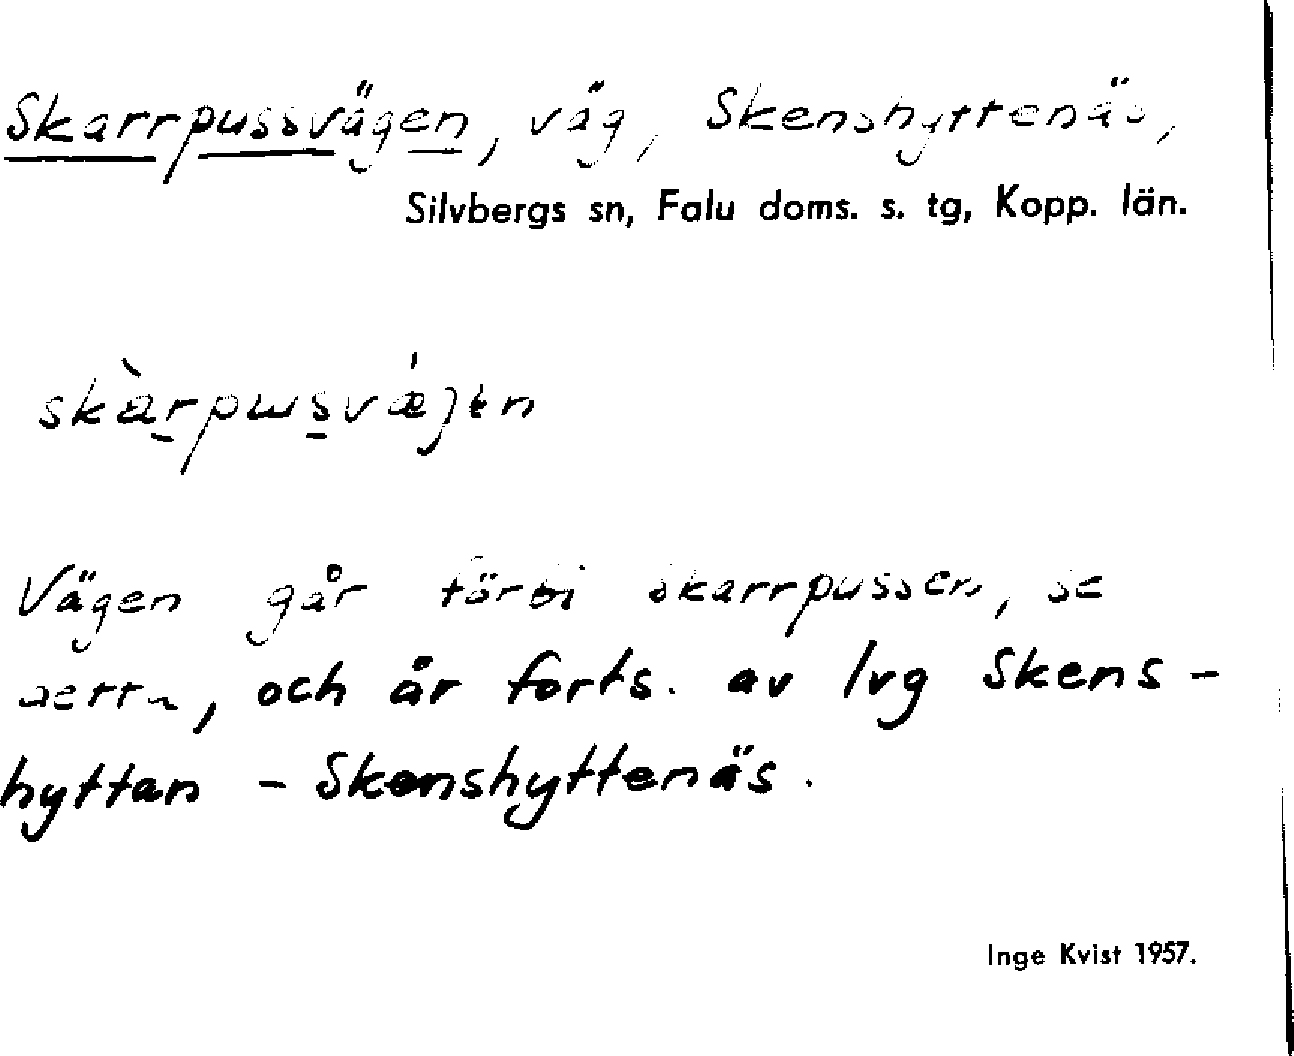 Skarrpussvägen, väg, Skenshyttenäs,
Silvbergs sn, Falu doms. s. tg, Kopp. län.
Vägen går förbi Skarrpussen, se
detta, och är forts. av lvg Skens-
hyttan - Skenshyttenäs.
Inge Kvist 1957.